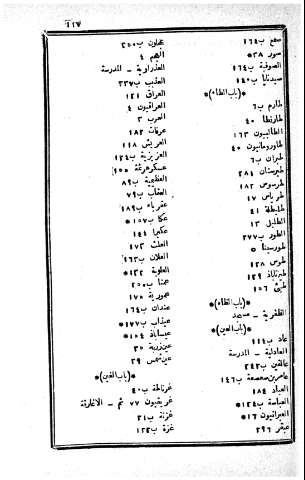 ١١٧
صمع ب١٦٤
سور ٣٨*
الصوفية ب١٦٤
صيدنايا ب١٤٠
*(باب الطاء)*
طارم ب٦
طارنطا ٤٠
الطالبيون ١٦٣
طاورومانيون ٤٠
طبران ب٦
طبرستان ٢٨١
طرسوس ١٨٢
طرياس ١٧
طليطلة ٤١
الطليل ١٣
الطور ب٢٧٧
طورسينا ٥
طوس ١٢٨
طيزناباذ ١٢٩
طيئ ١٥٦
*(باب الظاء)*
الظفرية – مسجد
*(باب العين)*
عاد ب١١١
العادلية – المدرسة
عالقين ب٢٤٢
عامر بن صعصعة ب١٤٦
العباد ١٨٤
العباسة ب١٢٤*
العبرانيون ١٦*
عبقر ٢٩٦
عجلون ب٢٥٠
العجم ٤
العذراوية – المدرسة
العذيب ب٢٣٧
العراق ١٢١
العراقيون ٤
العرب ٣
عرفات ١٨٢
العريش ١١٨
العزيزية ب١٢٤
عسكر هرثمة ١٥٥
العظيمية ب٨٩
العقاب ب٧٩
عقرباء ب١٨٩
عكا ب١٥٧*
عكبرا ١٤١
العلث ١٧٢
العلان ب١٦٢
العلوية ١٣٢*
عمتا ب٢٥٥
عمورية ١٧٥
عندان ب١٦٤
عيذاب ب١٧٧*
عيساباذ ١٥٤*
عين زربة ٣٥
عين شمس ٢٩
*(باب الغين)*
غرناطة ب٤٠
غريقيون ٧٧ ثم – الاغارقة
غزنة ب٢١
غزة ب١٢٢